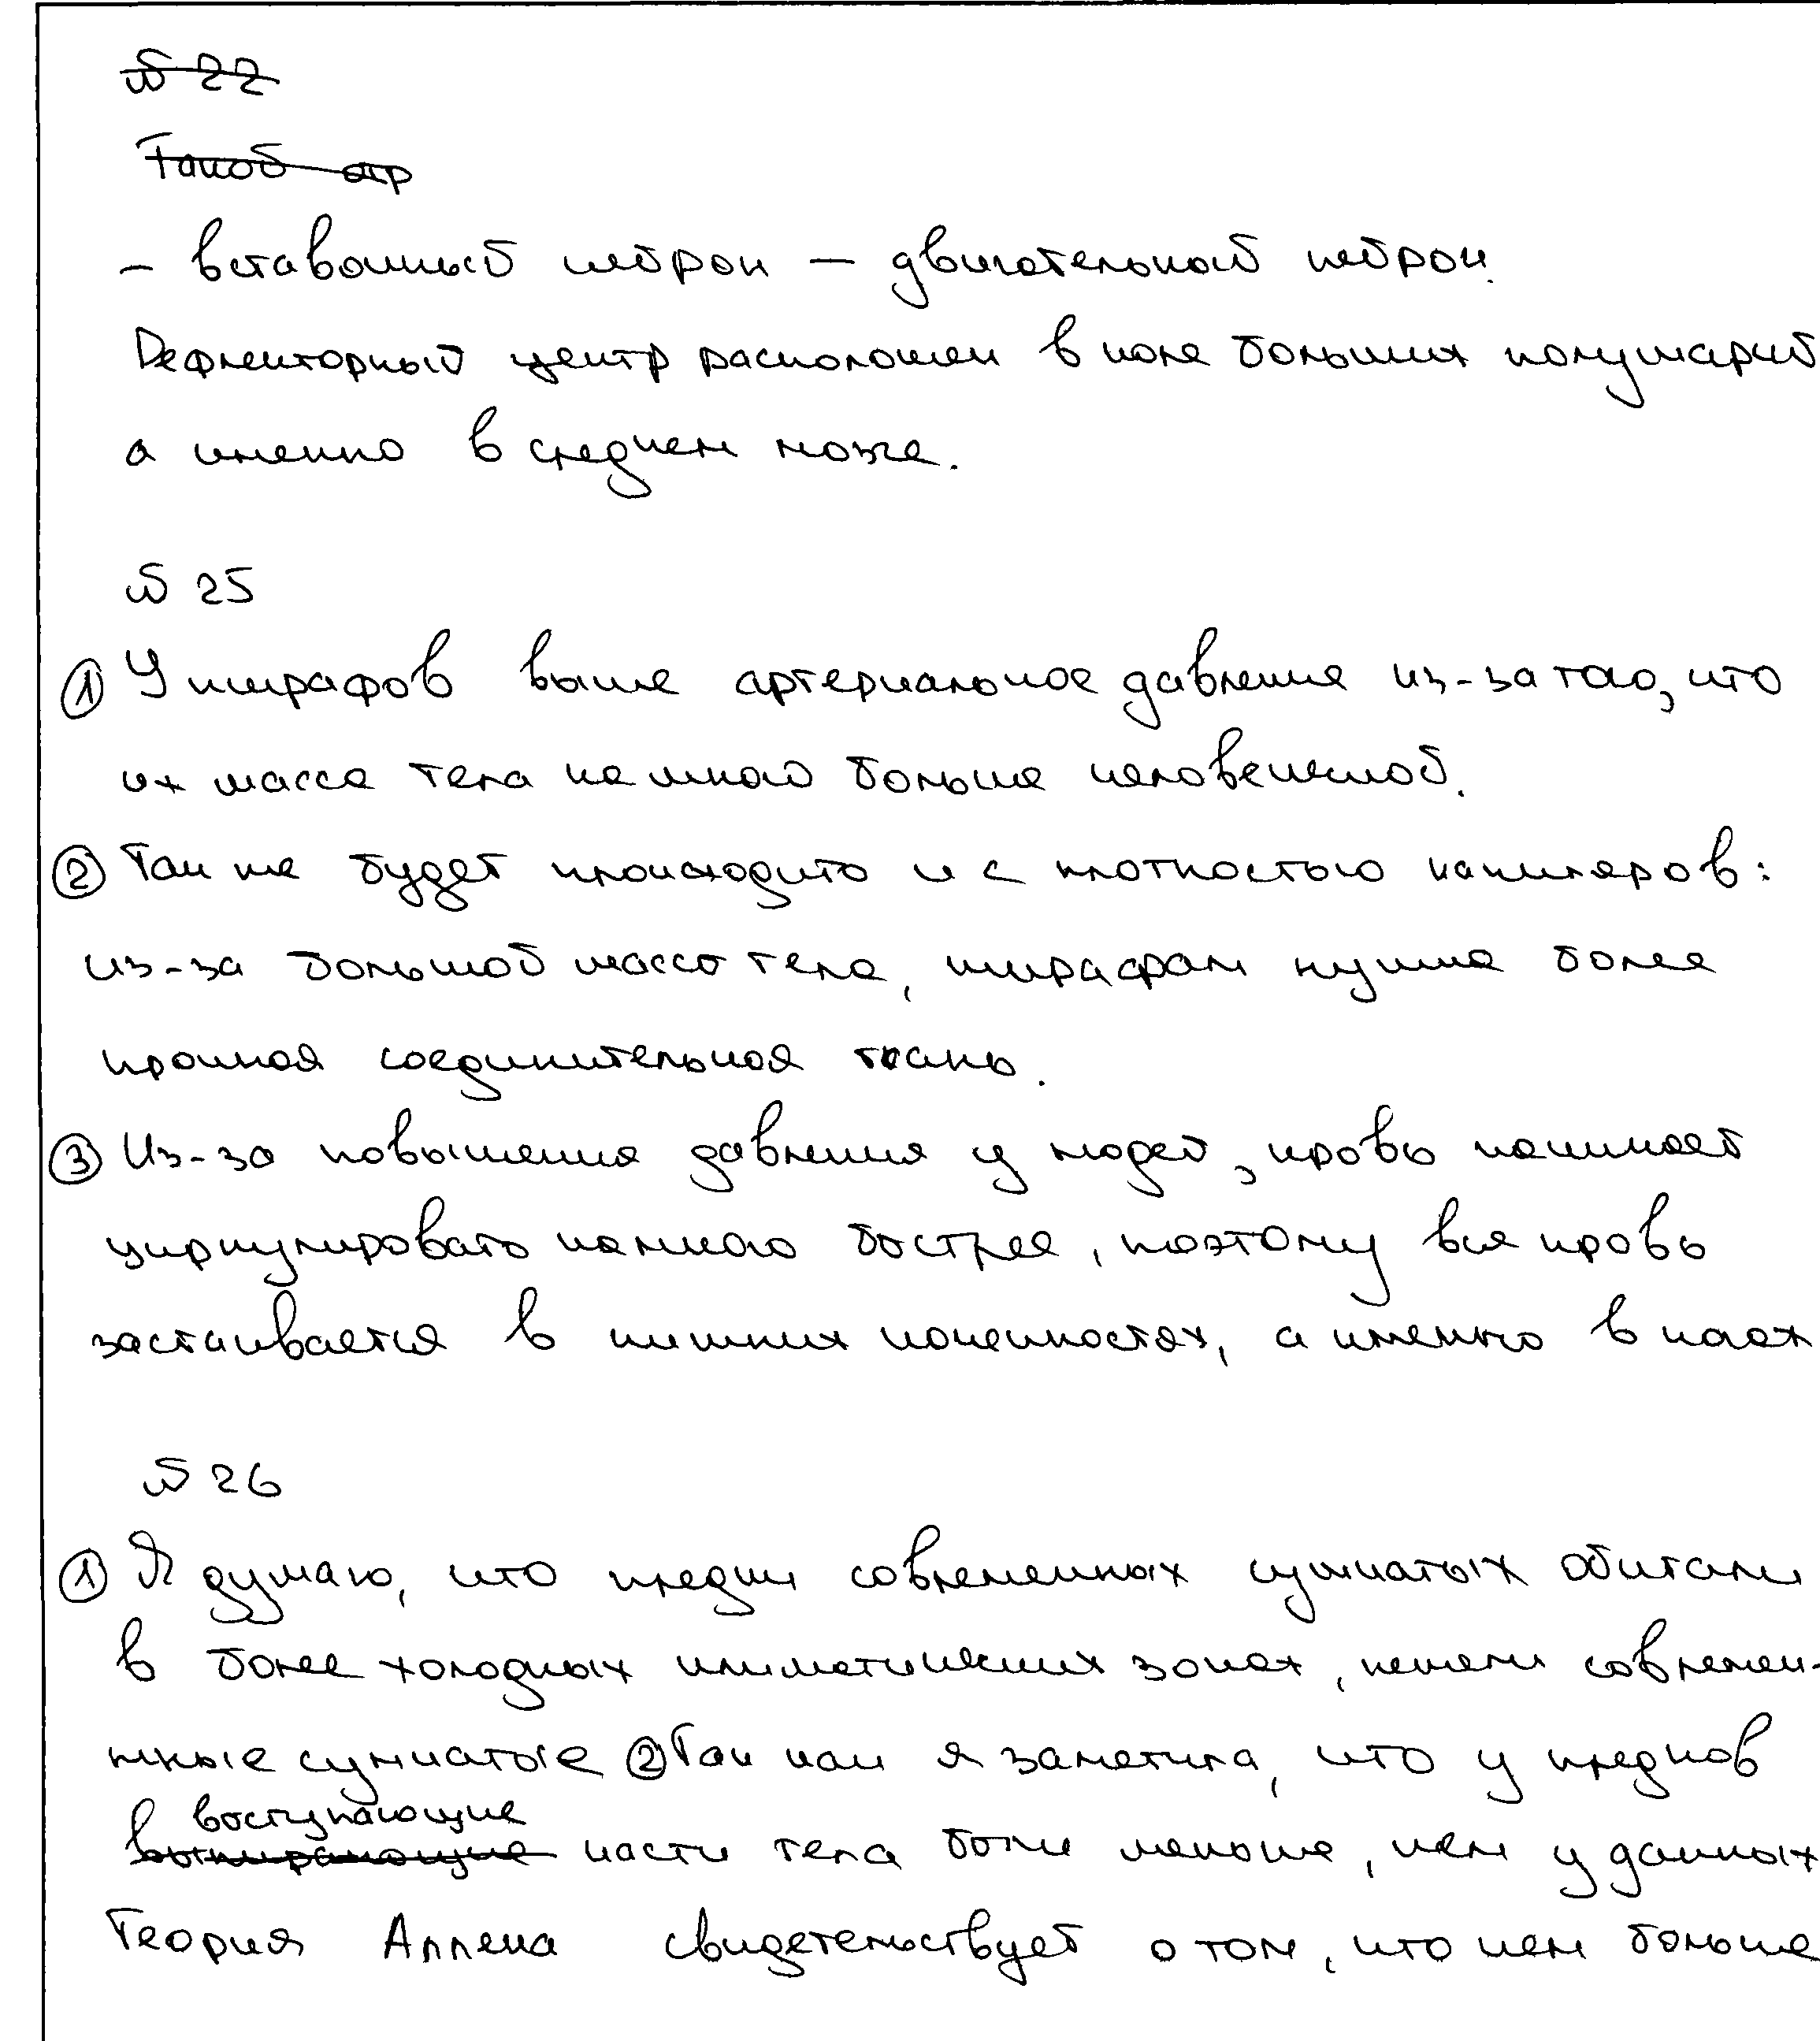 № 22
Такой отр
– вставочный нейрон – двигательный нейрон.
Рефлекторный центр расположен в коре больших полушарий
а именно в среднем мозге.
№ 25
① У жирафов выше артериальное давление из-за того, что
их масса тела намного больше человеческой.
② Так же будет происходить и с плотностью капиляров:
из-за большой массы тела, жирафам нужна более
прочная соединительная ткань.
③ Из-за повышения давления у людей, кровь начинает
циркулировать намного быстрее, поэтому вся кровь
застаивается в нижних конечностях, а именно в ногах
№ 26
① Я думаю, что предки современных сумчатых обитали
в более холодных климатических зонах, нежели современ-
нные сумчатые ② Так как я заметила, что у предков
воступающие
части тела были меньше, чем у данных
Теория Аллена свидетельствует о том, что чем больше